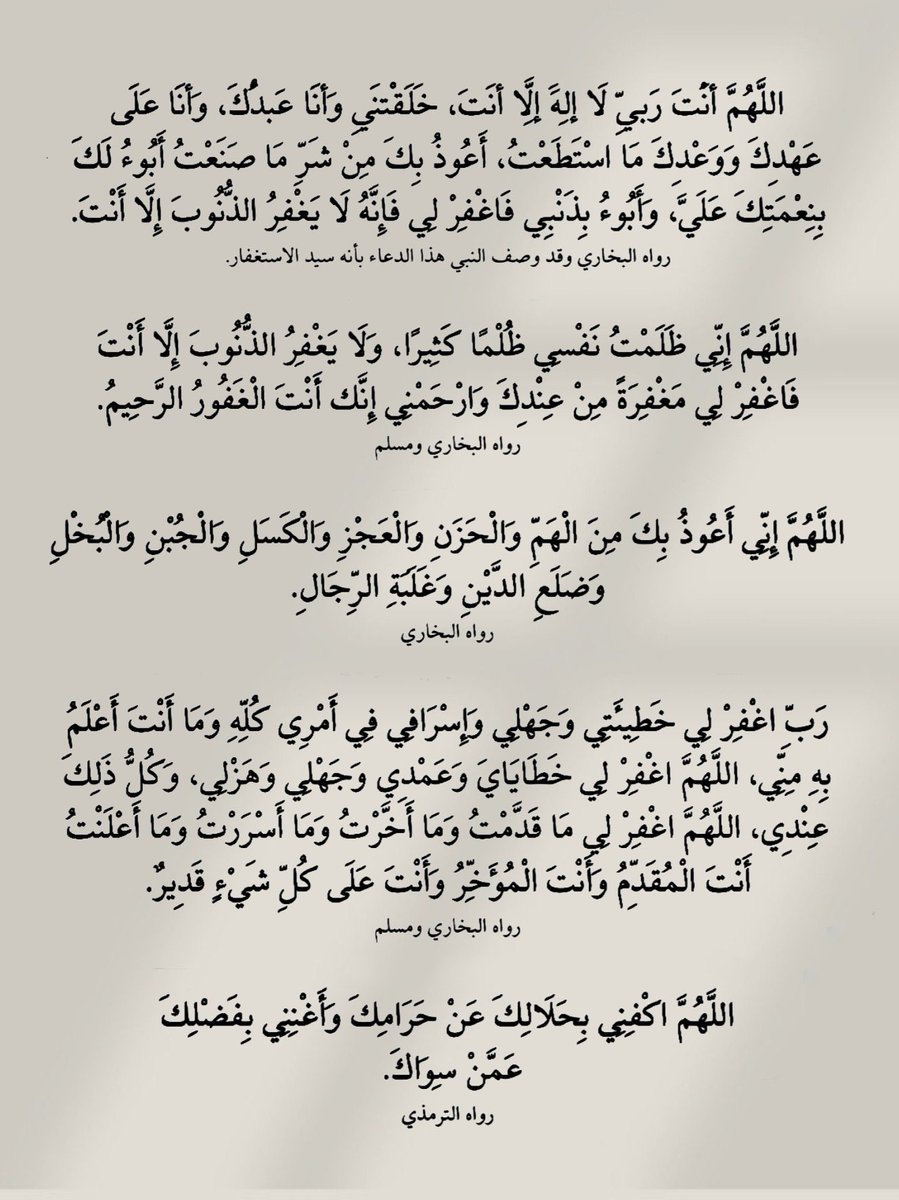 اللَّهُمَّ أنْتَ رَبيِّ لَا إلِهَ إِلَّا أنَتَ، خَلَقْتنَيِ وَأنَا عَبدُكَ، وَأنَا عَلَى
عَهْدِكَ وَوَعْدِكَ مَا اسْتَطَعْتُ، أَعُوذُ بِكَ مِنْ شَرِّ مَا صَنَعْتُ أَبُوءُ لَكَ
بِنِعْمَتِكَ عَلَيَّ، وَأَبُوءُ بِذَنْبِي فَاغْفِرْ لِي فَإِنَّهُ لَا يَغْفِرُ الذُّنُوبَ إِلَّا أَنْتَ.
رواه البخاري وقد وصف النبي هذا الدعاء بأنه سيد الاستغفار.
اللَّهُمَّ إِنِّي ظَلَمْتُ نَفْسِي ظُلْمًا كَثِيرًا، وَلَا يَغْفِرُ الذُّنُوبَ إِلَّا أَنْتَ
فَاغْفِرْ لِي مَغْفِرَةً مِنْ عِنْدِكَ وَارْحَمْنِي إِنَّك أَنْتَ الْغَفُورُ الرَّحِيمُ.
رواه البخاري ومسلم
اللَّهُمَّ إِنِّي أَعُوذُ بِكَ مِنَ الْهَمِّ وَالْحَزَنِ وَالْعَجْزِ وَالْكَسَلِ وَالْجُبْنِ وَالْبُخْلِ
وَضَلَعِ الدَّيْنِ وَغَلَبَةِ الرِّجَالِ.
رواه البخاري
رَبِّ اغْفِرْ لِي خَطِيئَتِي وَجَهْلِي وَإِسْرَافِي فِي أَمْرِي كُلِّهِ وَمَا أَنْتَ أَعْلَمُ
بِهِ مِنِّي، اللَّهُمَّ اغْفِرْ لِي خَطَايَايَ وَعَمْدِي وَجَهْلِي وَهَزْلِي، وَكُلُّ ذَلِكَ
عِنْدِي، اللَّهُمَّ اغْفِرْ لِي مَا قَدَّمْتُ وَمَا أَخَّرْتُ وَمَا أَسْرَرْتُ وَمَا أَعْلَنْتُ
أَنْتَ الْمُقَدِّمُ وَأَنْتَ الْمُؤَخِّرُ وَأَنْتَ عَلَى كُلِّ شَيْءٍ قَدِيرٌ.
رواه البخاري ومسلم
اللَّهُمَّ اكْفِنِي بِحَلَالِكَ عَنْ حَرَامِكَ وَأَغْنِنِي بِفَضْلِكَ
عَمَّنْ سِوَاكَ.
رواه الترمذي